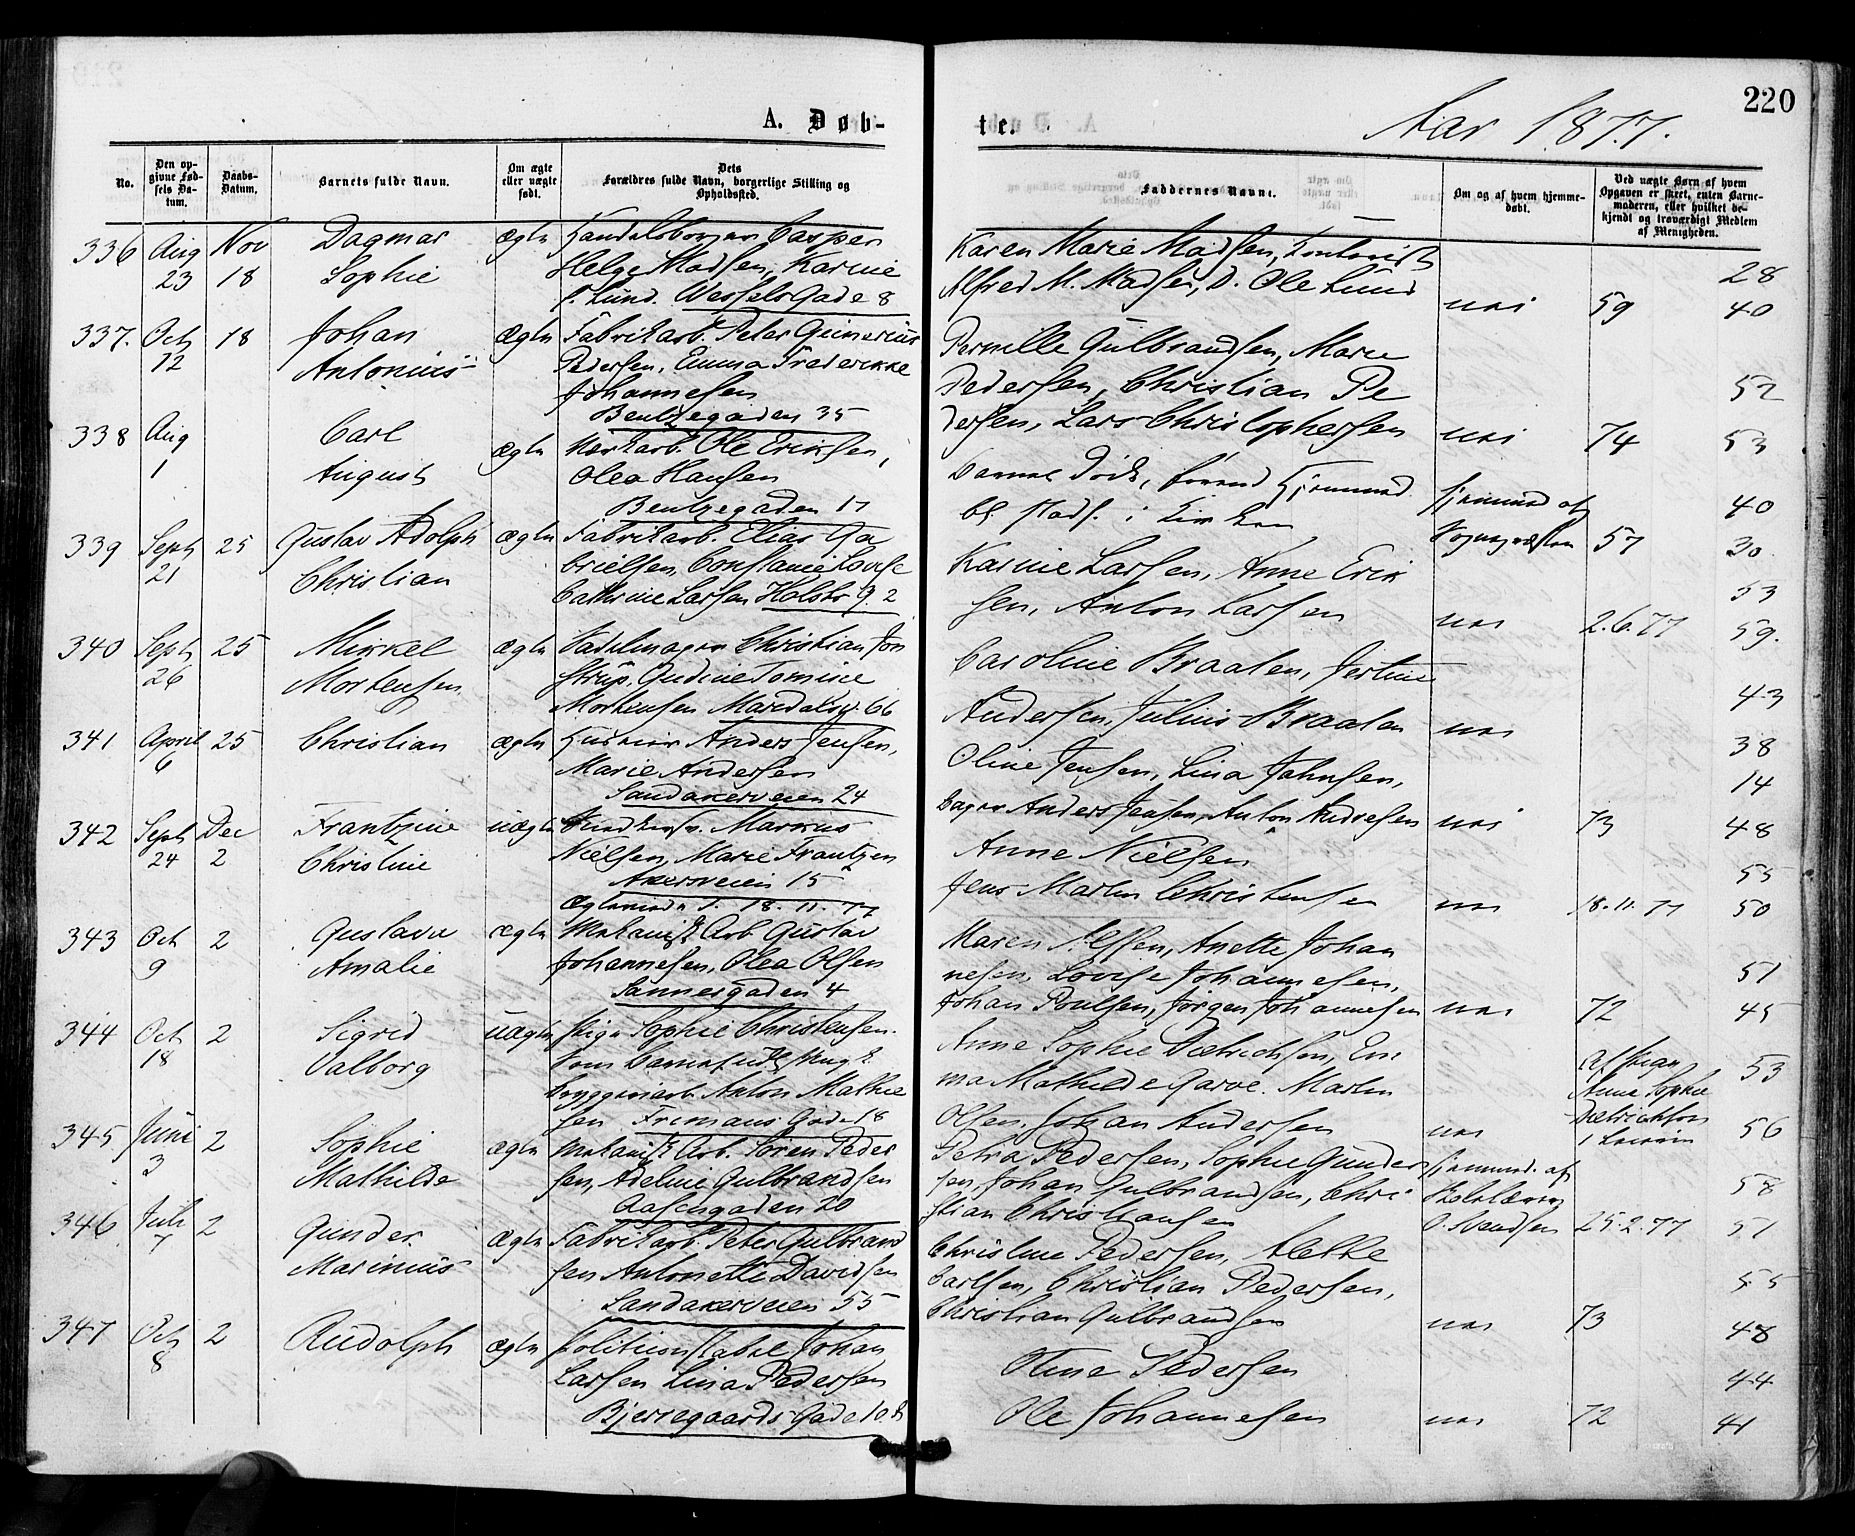 220
A. Døb-
te.
Aar 1877.
No.
Den op-
givne Fød-
sels Da-
tum.
Daabs-
Datum.
Barnets fulde Navn.
Om ægte
eller uægte
født.
Dets
Forældres fulde Navn, borgerlige Stilling og
Opholdssted.
Faddernes Navne.
Om og af hvem hjemme-
døbt.
Ved uægte Børn af hvem
Opgaven er skeet, enten Barne-
moderen, eller hvilket be-
kjendt og troværdigt Medlem
af Menigheden.
336 Aug Nov Dagmar ægte Handelsborger Casper
23 18 Sophie Helge Madsen, Karine
f. Lund. Wessels Gade 8
Karen Marie Madsen,
Alfred M. Madsen, D. Ole Lund
nei 59
28
40
337. Oct 18 Johan ægte Fabrikarb. Peter Gunerius
12 Antonius Pedersen, Emma Frederikke
Johannesen
Bentzegaden 35
Pernille Gulbrandsen, Marie
Pedersen, Christian Pe
dersen, Lars Christophersen nei 74
52
53
338 Aug Carl ægte Verkarb. Ole Eriksen,
1 August Olea Hansen
Bentzegaden 17
Barnet døde, førend Hjemmed.
bl. stadf. i Kirken
Hjemmed af
57
40
30
339 Sept 25 Gustav Adolph ægte Fabrikarb. Elias Ga
21 Christian brielsen, Constanse Lovise
Cathrine Larsen Holsts G. 2
Karine Larsen, Anne Erik
sen, Anton Larsen nei 2.6.77
53
59.
340 Sept 25 Mikkel ægte Sadelmager Christian Jon
26 Mortensen strup, Gudine Tomine
Mortensen Maridalsv. 66
Caroline Braaten, Jertine
Andersen, Julius Braaten nei
43
38
341 April 25 Christian ægte Anders Jensen,
6 Marie Andersen
Sandakerveien 24
Oline Jensen, Lina Johnsen,
Bager Anders Jensen, Anton Andresen nei 73
14
48
342 Sept Dec Frantzine uægte Markus
24 2 Christine Nielsen, Marie Frantzen
Akersveien 15
18.11.77
Anne Nielsen
Jens Martin Christensen nei 18.11.77
55
50
343 Oct 2 Gustava ægte Mekanisk Arb. Gustav
9 Amalie Johannesen, Olea Olsen
Sannergaden 4
Maren Olsen, Anette Johan
nesen, Lovise Johannesen,
Johan Poulsen, Jörgen Johannesen nei 72
51
45
344 Oct 2 Sigrid uægte Pige Sophie Christensen.
18 Valborg Som Barnefader
byggerarb. Anton Mathie
sen Fremans Gade 18
Anne Sophie Dietrichsen, Em
ma Mathilde Garve. Martin
Olsen, Johan Andersen nei
Af
Anna Sophie
Dietrichson
53
56
345 Juni 2 Sophie ægte Mekanisk Arb. Sören Peder
3 Mathilde sen, Adeline Gulbrandsen
Aasengaden 20
Petra Pedersen, Sophie Gunder
sen, Johan Gulbrandsen, Chri
stian Christiansen
Hjemmed. af
25.2.77
58
51
346 Juli 2 Gunder ægte Fabrikarb. Peter Gulbrand
7 Marinius sen Antonette Davidsen
Sandakerveien 55
Christine Pedersen, Alette
Carlsen, Christian Pedersen,
Christian Gulbrandsen nei 73
55
48
347 Oct 2 Rudolph ægte Politikonstabel Johan
8 Larsen Lina Pedersen
Bjerregaards Gade 10 b
Oline Pedersen
Ole Johannesen nei 72
44
41